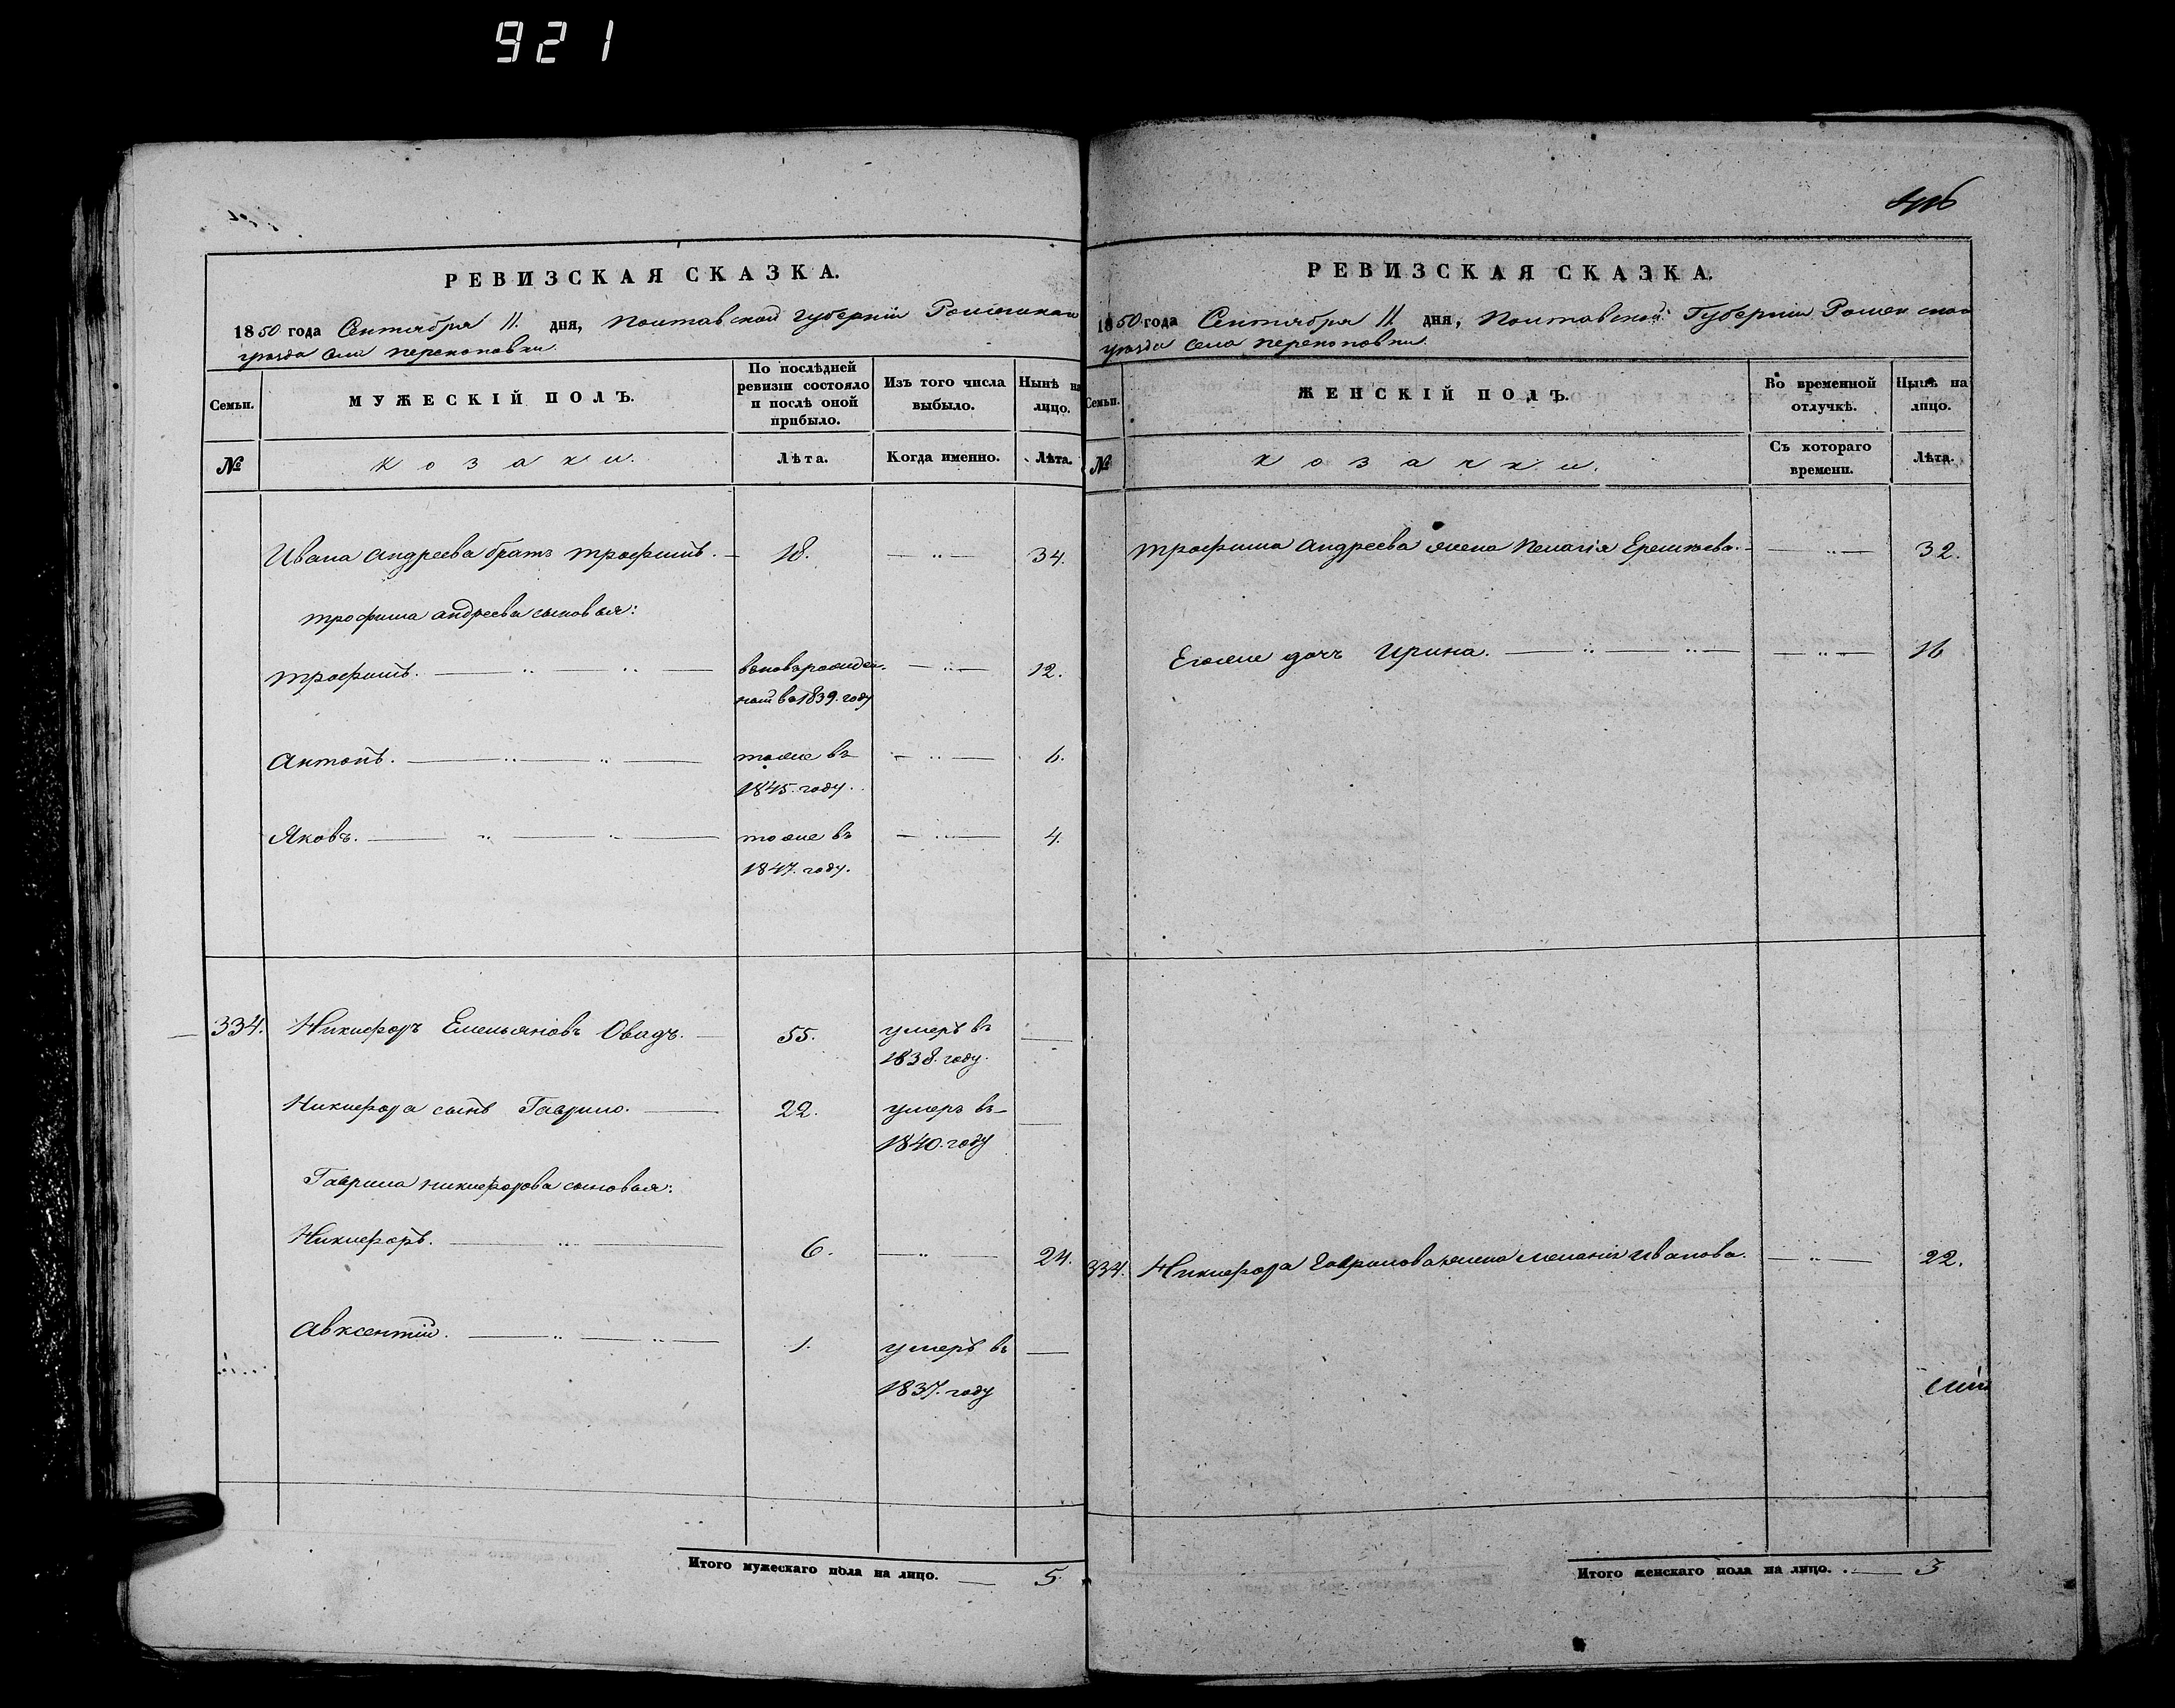 921
416
РЕВИЗСКАЯ СКАЗКА.
1850 года Сентября 11. дня, Полтавской губерніи Роменскаго
уезда села перекоповки.
Семьи.
МУЖЕСКІЙ ПОЛЪ.
По послѣдней
ревизіи состояло
и послѣ оной
прибыло.
Изъ того числа
выбыло.
Нынѣ на
лицо.
№
козаки.
Лѣта.
Когда именно.
Лѣта.
Ивана Андреева братъ трофимъ. 18. 34.
трофима андреева сыновья:
трофимъ. вновьрожден- 12.
ной въ 1839. году
Антонъ. тоже въ 6.
1845. году.
Яковъ. тоже въ 4.
1847. году.
334. Никифоръ Емельяновъ Овадъ. 55. умеръ въ
1838. году.
Никифора сынъ Гаврило. 22. умеръ въ
1840. году
Гаврила никифорова сыновья:
Никифоръ. 6. 24.
Авксентій. 1. умеръ въ
1837. году
Итого мужескаго пола на лицо. 5.
РЕВИЗСКАЯ СКАЗКА.
1850 года Сентября 11. дня, Полтавской Губерніи Роменскаго
уезда села перекоповки.
Семьи.
ЖЕНСКІЙ ПОЛЪ.
Во временной
отлучкѣ.
Нынѣ на
лицо.
№
козачки.
Съ котораго
времени.
Лѣта.
трофима Андреева жена Пелагія Еремѣева. 32.
Егоже дочь Ирина. 16
334. Никифора Гаврилова жена Меланія Иванова. 22.
Итого женскаго пола на лицо. 3